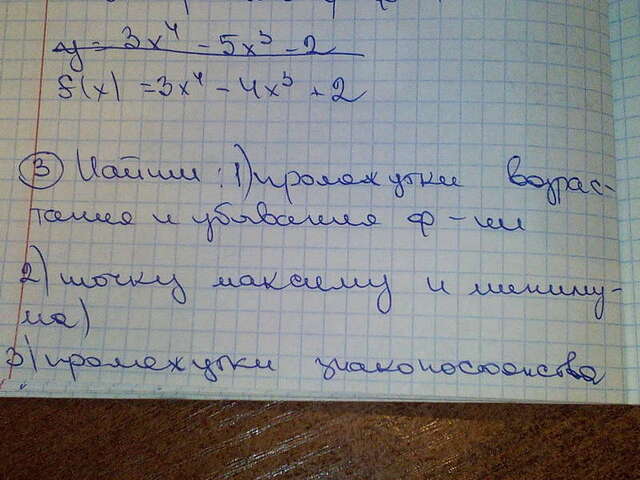 y = 3x⁴ - 5x³ - 2
f(x) = 3x⁴ - 4x³ + 2
③ Найти: 1) промежутки возрас-
тания и убывания ф-ии
2) точку максиму и миниму-
ма)
3) промежутки знакопостоянства